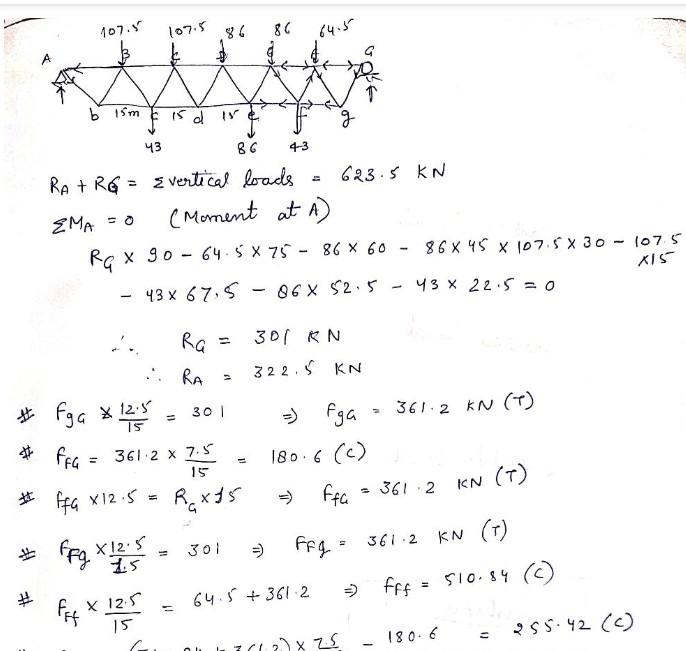 107.5 107.5 86 86 64.5
A B C D G
b 15m c 15 d 15 e f g
43 86 43
RA + RG = Σ vertical loads = 623.5 KN
ΣMA = 0 (Moment at A)
RG × 90 - 64.5 × 75 - 86 × 60 - 86 × 45 × 107.5 × 30 - 107.5 ×15
- 43 × 67.5 - 86 × 52.5 - 43 × 22.5 = 0
∴ RG = 301 KN
∴ RA = 322.5 KN
# FgG × 12.5/15 = 301 ⇒ FgG = 361.2 KN (T)
# FFG = 361.2 × 7.5/15 = 180.6 (C)
# FfG ×12.5 = RG×15 ⇒ FfG = 361.2 KN (T)
# FFg × 12.5/15 = 301 ⇒ FFg = 361.2 KN (T)
# FFf × 12.5/15 = 64.5 + 361.2 ⇒ FFf = 510.84 (C)
× 7.5 - 180.6 = 255.42 (C)